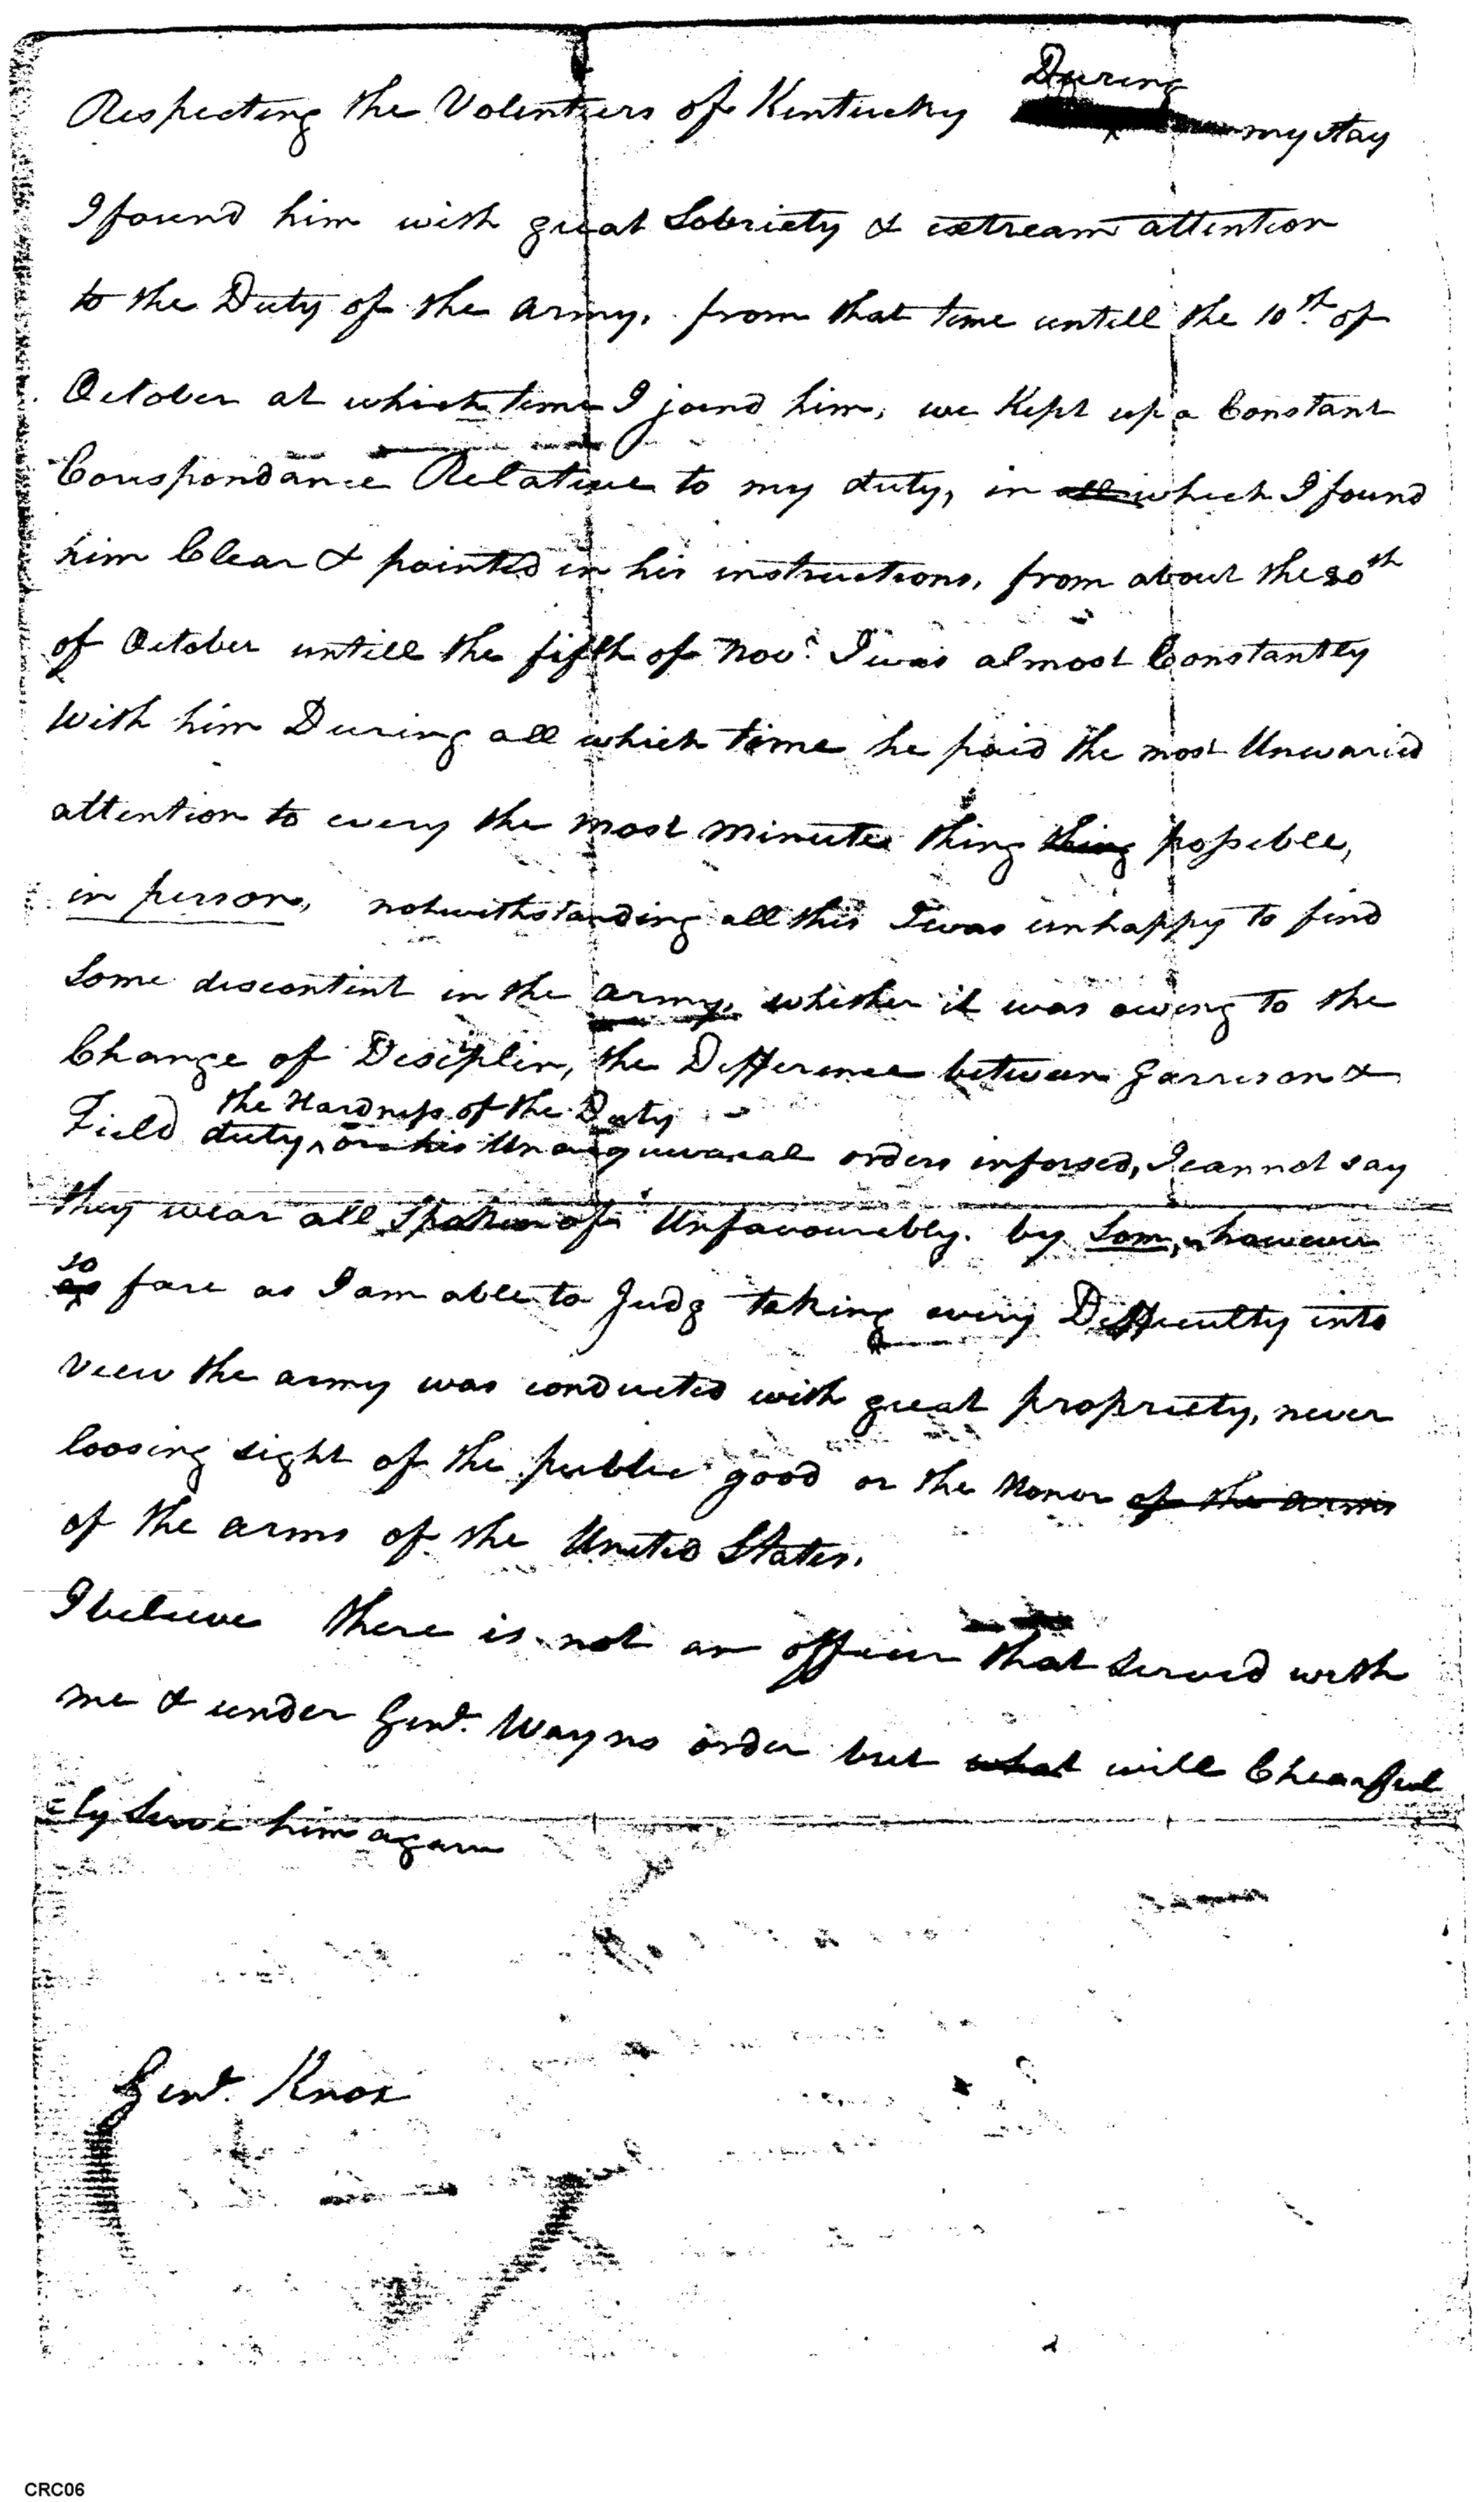 Respecting the Volenteers of Kentucky During my stay
I found him with great Sobriety & extream attention
to the Duty of the army, from that time untill the 10th of
October at which time I joind him, we Kept up a Constant
Corispondance Relative to my duty, in all which I found
him Clear & pointed in his instructions, from about the 20th
of October untill the fifth of Novr. I was almost Constantly
With him During all which time he paid the most Unwaried
attention to every the most minute thing thing possible,
in person, notwithstanding all this I was unhappy to find
Some discontint in the army, whether it was owing to the
Change of Disciplin, the Difference between Garrison &
the Hardness of the Duty
Field duty, or his orders inforsed, I cannot say
they wear all Spoken of Unfavourebly. by Som, however
so
as fare as I am able to Judg taking every Difficulty into
view the army was conducted with great propriety, never
loosing sight of the public good or the Honor of the arms
of the arms of the United States.
I believe there is not an officer that served with
me & under Genl. Wayns order but what will Chearful
=ly Serve him again
Genl. Knox
CRC06